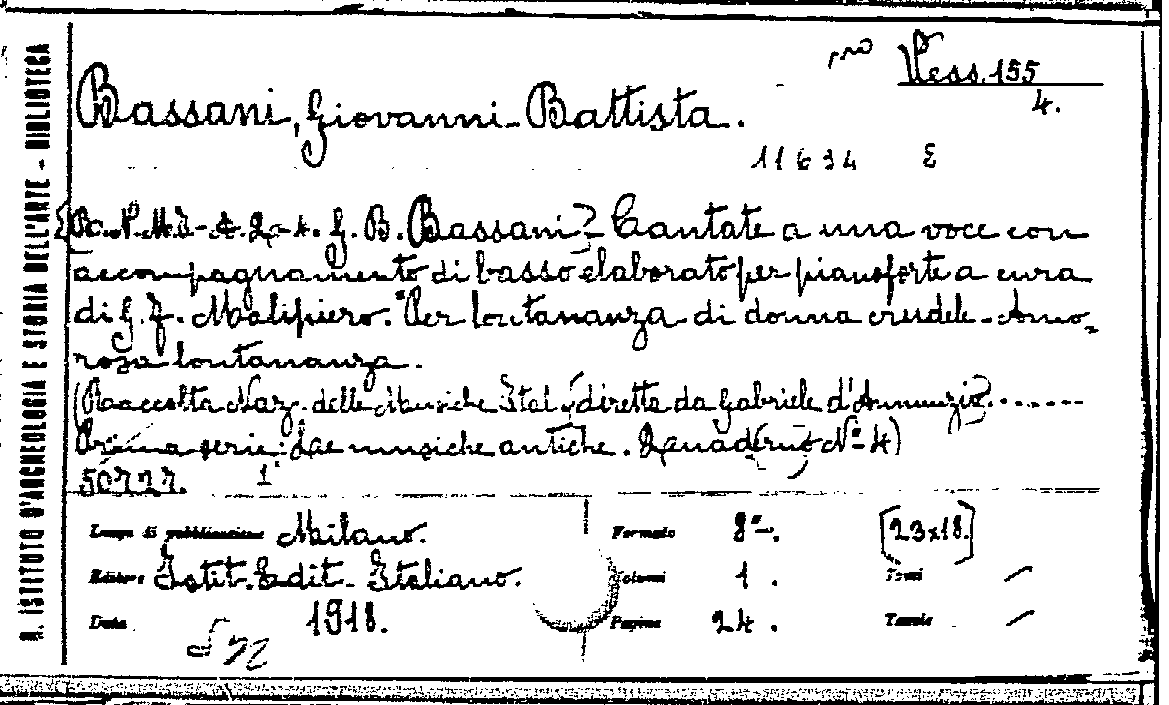 Vess. 155
4.
Bassani, Giovanni Battista.
11634 E
G. B. Bassani Cantate a una voce con
accompagnamento di basso elaborato per pianoforte a cura
di G. F. Malipiero. "Per lontananza di donna crudele - Amo-
rosa lontananza.
(Raccolta Naz. delle Musiche Ital. diretta da Gabriele d'Annunzio.......
Prima serie: Le musiche antiche. Quaderno Nº 4)
50727. 1
R. ISTITUTO D'ARCHEOLOGIA E STORIA DELL'ARTE - BIBLIOTECA
Luogo di pubblicazione Milano. Formato 8º. [23x18.]
Editore Istit. Edit. Italiano. Volumi 1. Tomi /
Data 1918. Pagine 24. Tavole /